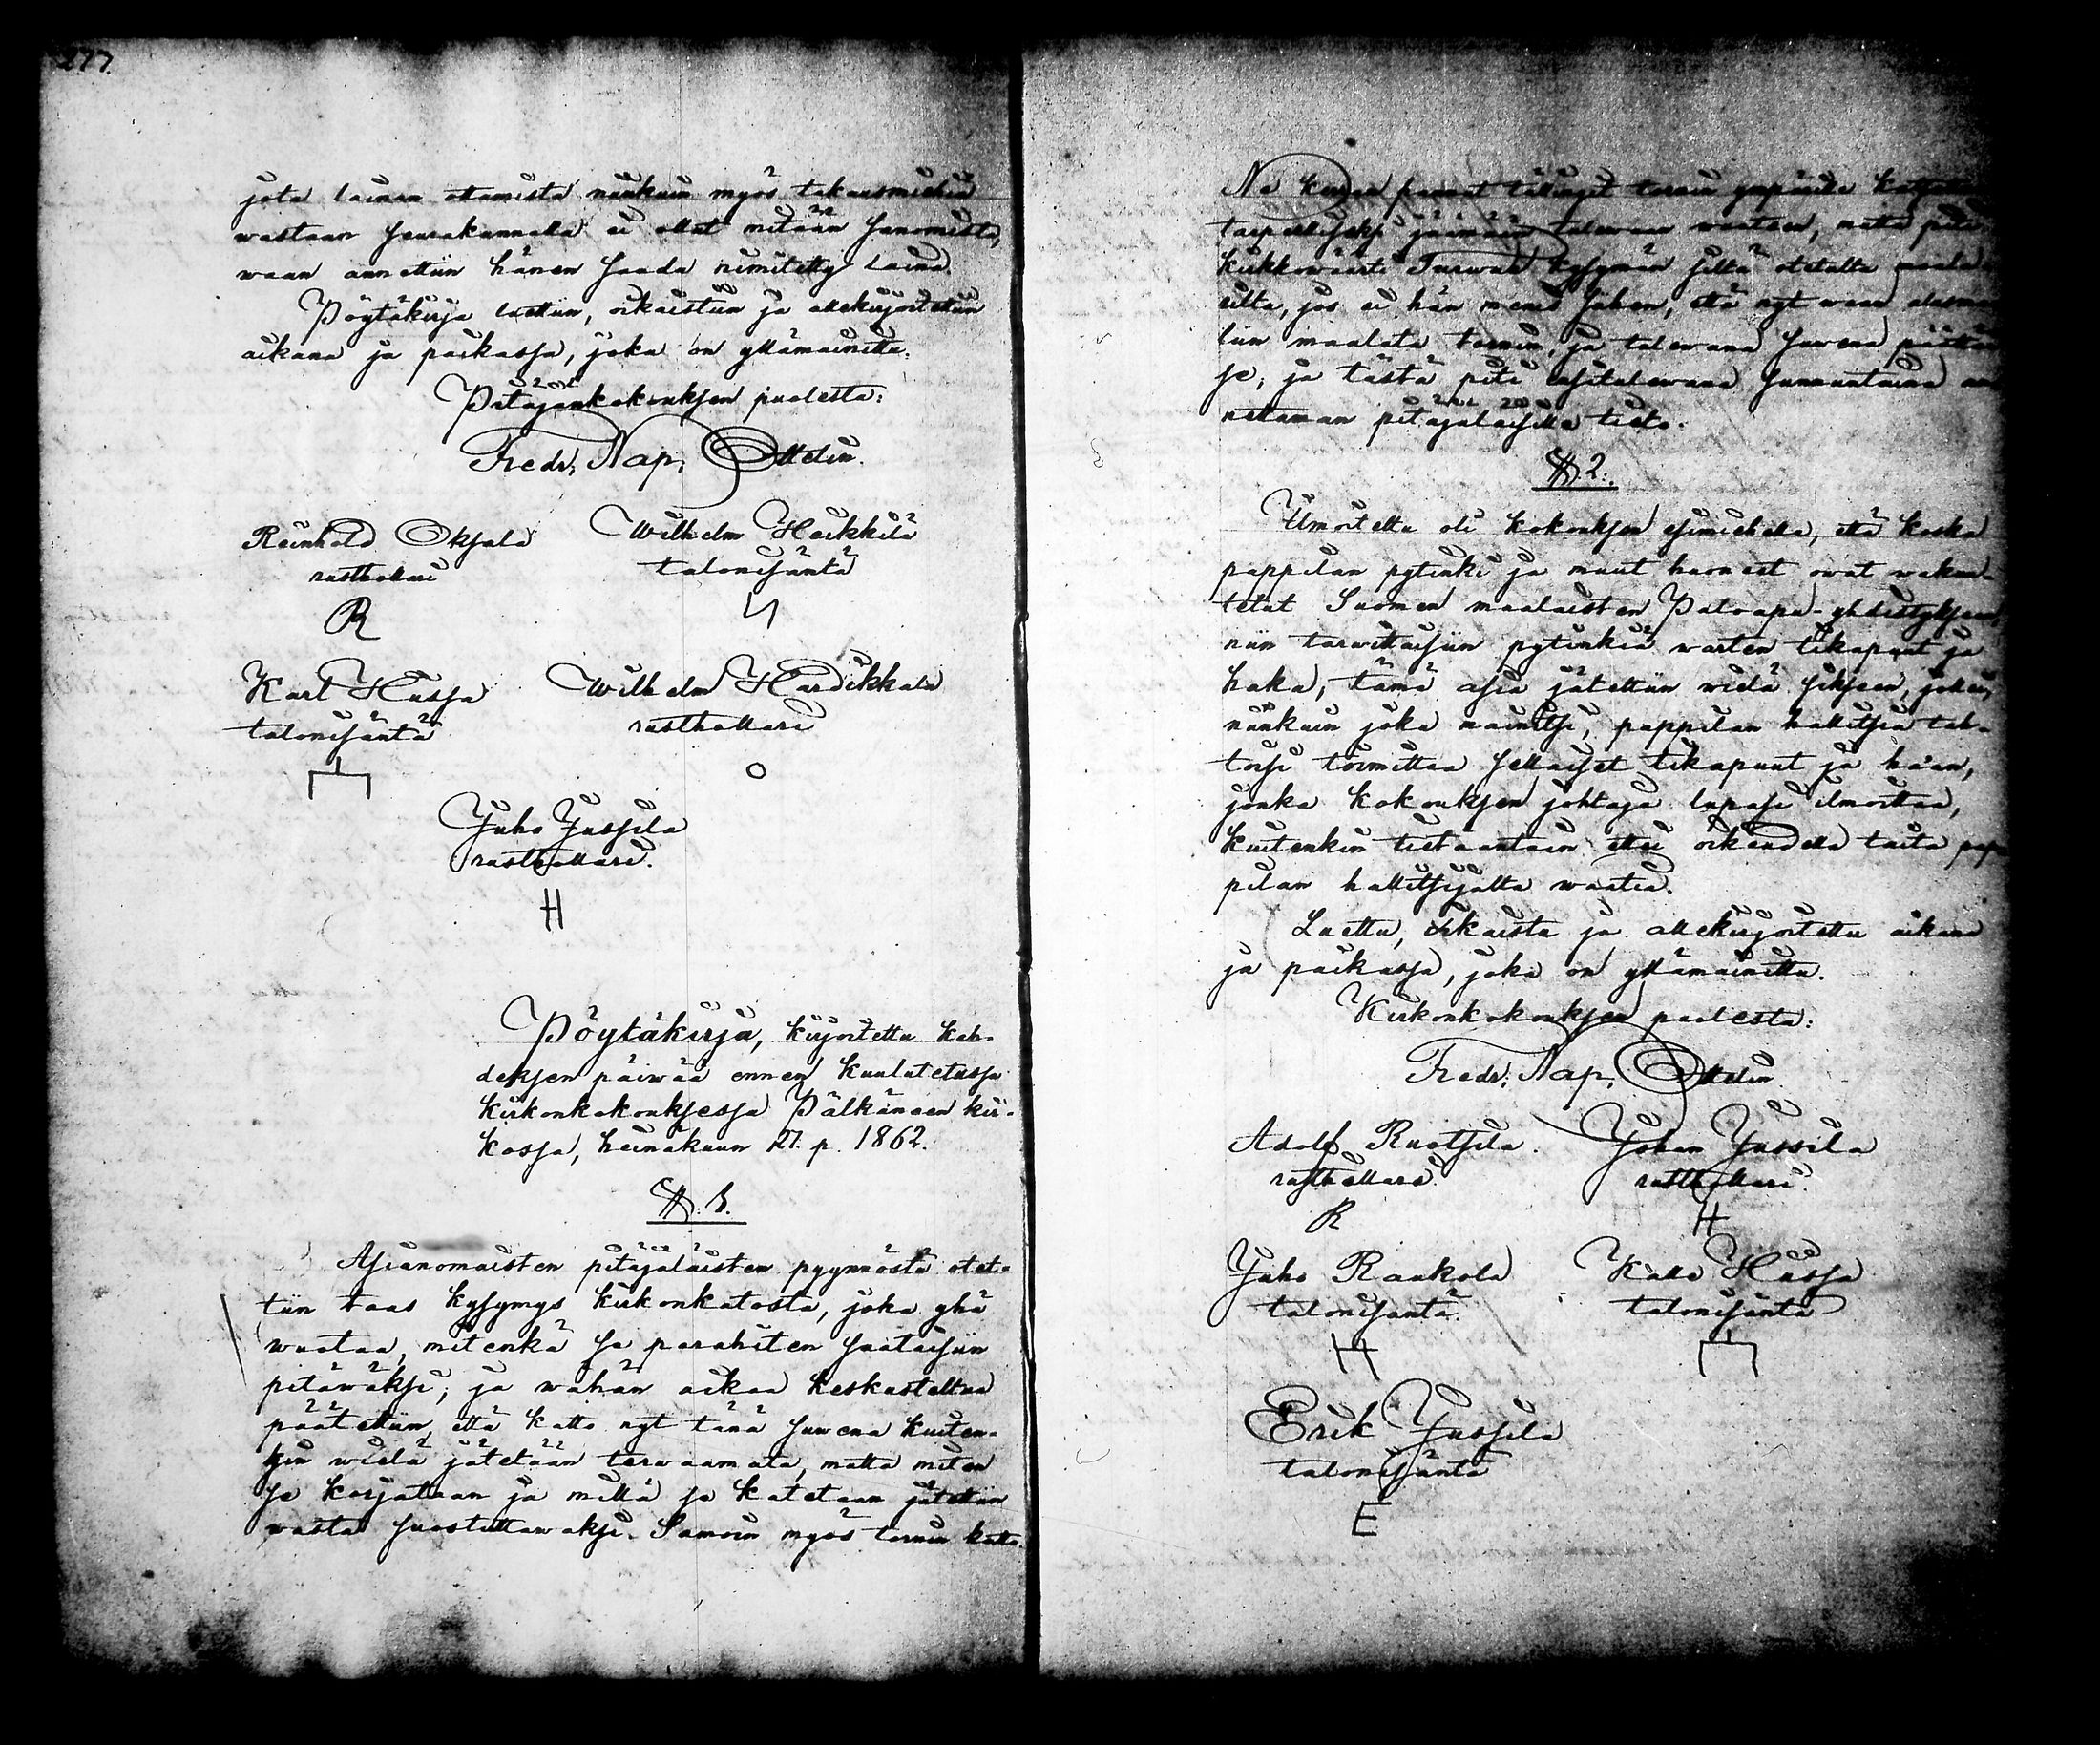 277.
jota lainan ottamista niinkuin myös takausmiehiä
wastaan seurakunnalla ei ollut mitään sanomista,
waan annettiin hänen saada nimitetty laina.
Pöytäkirja luettiin, oikaistiin ja allekirjoitettiin
aikana ja paikassa, joka on yllämainittu.
Pitäjänkokouksen puolesta:
Fredr. Nap. Ottelin.
Reinhold Oksala Wilhelm Heikkilä
rusthollari talonisäntä
R
Karl Hussa Wilhelm Hardikkala
talonisäntä rusthollari
O
Juho Jussila
rusthollari.
H
Pöytäkirja, kirjoitettu kah-
deksen päiwää ennen kuulutetussa
kirkonkokouksessa Pälkäneen kir-
kossa, heinäkuun 27. p. 1862.
§. 1.
Asianomaisten pitäjäläisten pyynnöstä otet-
tiin taas kysymys kirkonkatosta, joka yhä
wuotaa, mitenkä se parahiten saataisiin
pitäwäksi; ja wähän aikaa keskusteltua
päätettiin, että katto nyt tänä suwena kuiten-
kin wielä jätetään terwaamata, mutta miten
se korjataan ja millä se katetaan jätettiin
wasta suostuttawaksi. Samoin myös tornin katto.
Ne kerran pannut tällingit tornin ympärille katsottiin
tarpeelliseksi jäämään talewaan waatsen, mutta piti
kirkkowäärti Turwan kysymän siltä otetulta maala-
rilta, jos ei hän menis siihen, että nyt waan alusmaa-
liin maalata tornin, ja talewana suwena päättää
se; ja tästä piti ensitulewana sunnuntaina an-
nettaman pitäjäläisille tieto.
§. 2.
Ilmoitettu oli kokouksen esimiehellä, että koska
pappilan pytinki ja muut huoneet owat wakuu-
tetut Suomen maalaisten Paloapu-yhdistyksessä,
niin tarwittaisiin pytinkiä warten tikapuut ja
haka; tämä asia jätettiin wielä sikseen, joken,
niinkuin joka mainitsi, pappilan hallitsia tah-
toisi toimittaa sellaiset tikapuut ja haan,
jonka kokouksen johtaja lupasi ilmoittaa,
kuitenkin tiet äantain ettei oikeudella taita pap-
pilan hallitsijalta waatia.
Luettu, oikaistu ja allekirjoitettu aikana
ja paikassa, joka on yllämainittu.
Kirkonkokouksen puolesta:
Fredr. Nap. Ottelin
Adolf Ruotsila. Johan Jussila
rusthollari. rusthollari.
R H
Juho Raukola Kalle Hussa
talonisäntä. talonisäntä
H
Erik Jussila
talonisäntä
E